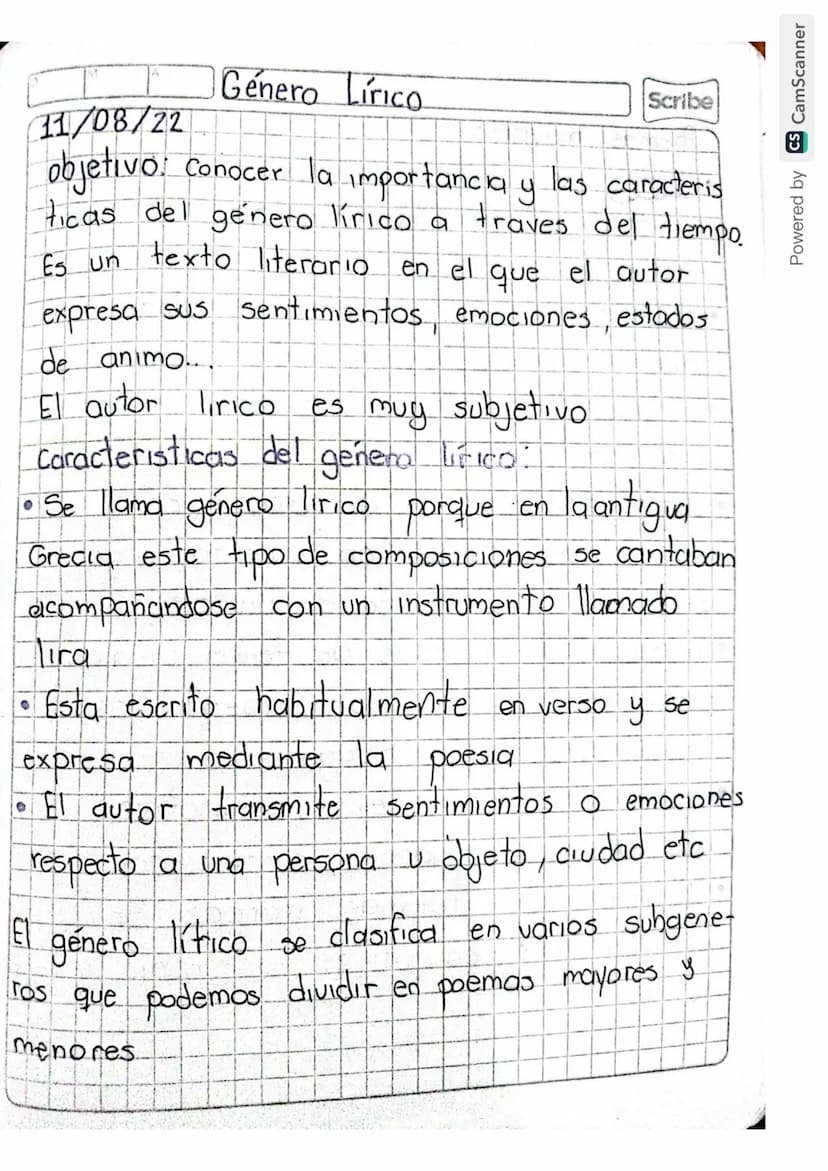 Género Lírico
Scribe
11/08/22
objetivo: Conocer la importancia y las caracteris
ticas del género lírico a traves del tiempo.
Es un texto literario en el que el autor
expresa sus sentimientos, emociones, estados
de animo...
El autor lirico es muy subjetivo
Caracteristicas del género lírico:
• Se llama género lirico porque en la antigua
Grecia este tipo de composiciones se cantaban
acompañandose con un instrumento llamado
lira
• Esta escrito habitualmente en verso y se
expresa mediante la poesia
• El autor transmite sentimientos o emociones
respecto a una persona u objeto, ciudad etc
El género lítico se clasifica en varios subgene-
ros que podemos dividir en poemas mayores y
menores
Powered by CS CamScanner